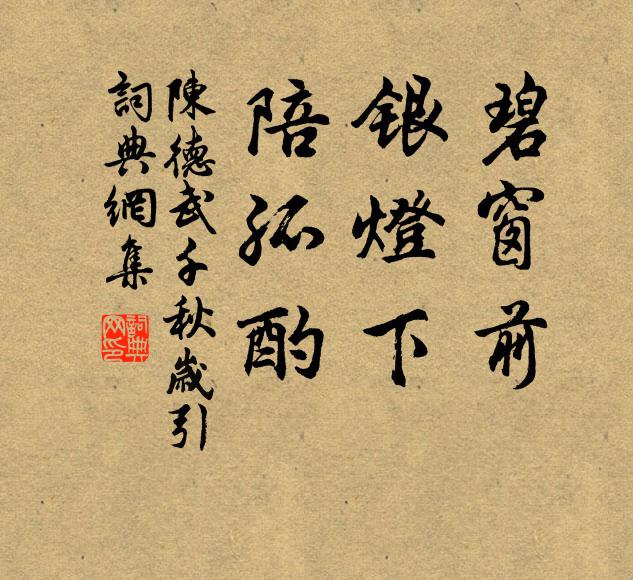 碧窗前
銀燈下
陪孤酌
陳德武千秋歲引
詞典網集
詞典
网印